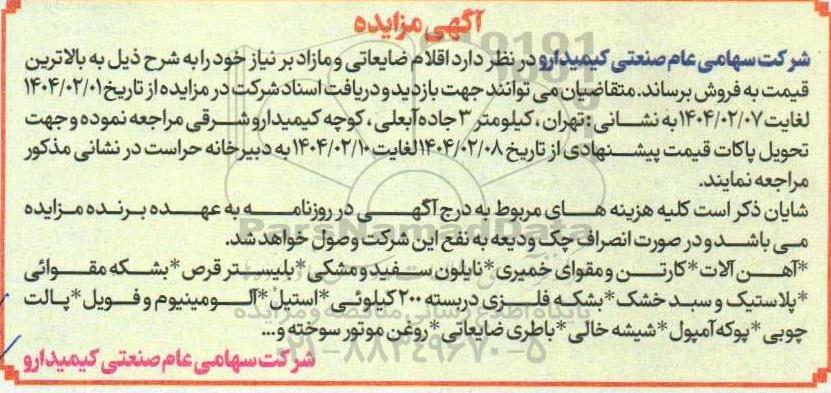 آگهی مزایده
شرکت سهامی عام صنعتی کیمیدارو در نظر دارد اقلام ضایعاتی و مازاد بر نیاز خود را به شرح ذیل به بالاترین
قیمت به فروش برساند. متقاضیان می توانند جهت بازدید و دریافت اسناد شرکت در مزایده از تاریخ ۱۴۰۴/۰۲/۰۱
لغایت ۱۴۰۴/۰۲/۰۷ به نشانی : تهران ، کیلومتر ۳ جاده آبعلی ، کوچه کیمیدارو شرقی مراجعه نموده و جهت
تحویل پاکات قیمت پیشنهادی از تاریخ ۱۴۰۴/۰۲/۰۸ لغایت ۱۴۰۴/۰۲/۱۰ به دبیرخانه حراست در نشانی مذکور
مراجعه نمایند.
شایان ذکر است کلیه هزینه های مربوط به درج آگهی در روزنامه به عهده برنده مزایده
می باشد و در صورت انصراف چک ودیعه به نفع این شرکت وصول خواهد شد.
*آهن آلات *کارتن و مقوای خمیری *نایلون سفید و مشکی *بلیستر قرص *بشکه مقوائی
*پلاستیک و سبد خشک *بشکه فلزی دربسته ۲۰۰ کیلوئی *استیل *آلومینیوم و فویل *پالت
چوبی *پوکه آمپول *شیشه خالی *باطری ضایعاتی *روغن موتور سوخته و...
شرکت سهامی عام صنعتی کیمیدارو
ParsNamadData
پایگاه اطلاع رسانی مناقصه و مزایده
۰۲۱-۸۸۳۴۹۶۷۰-۵